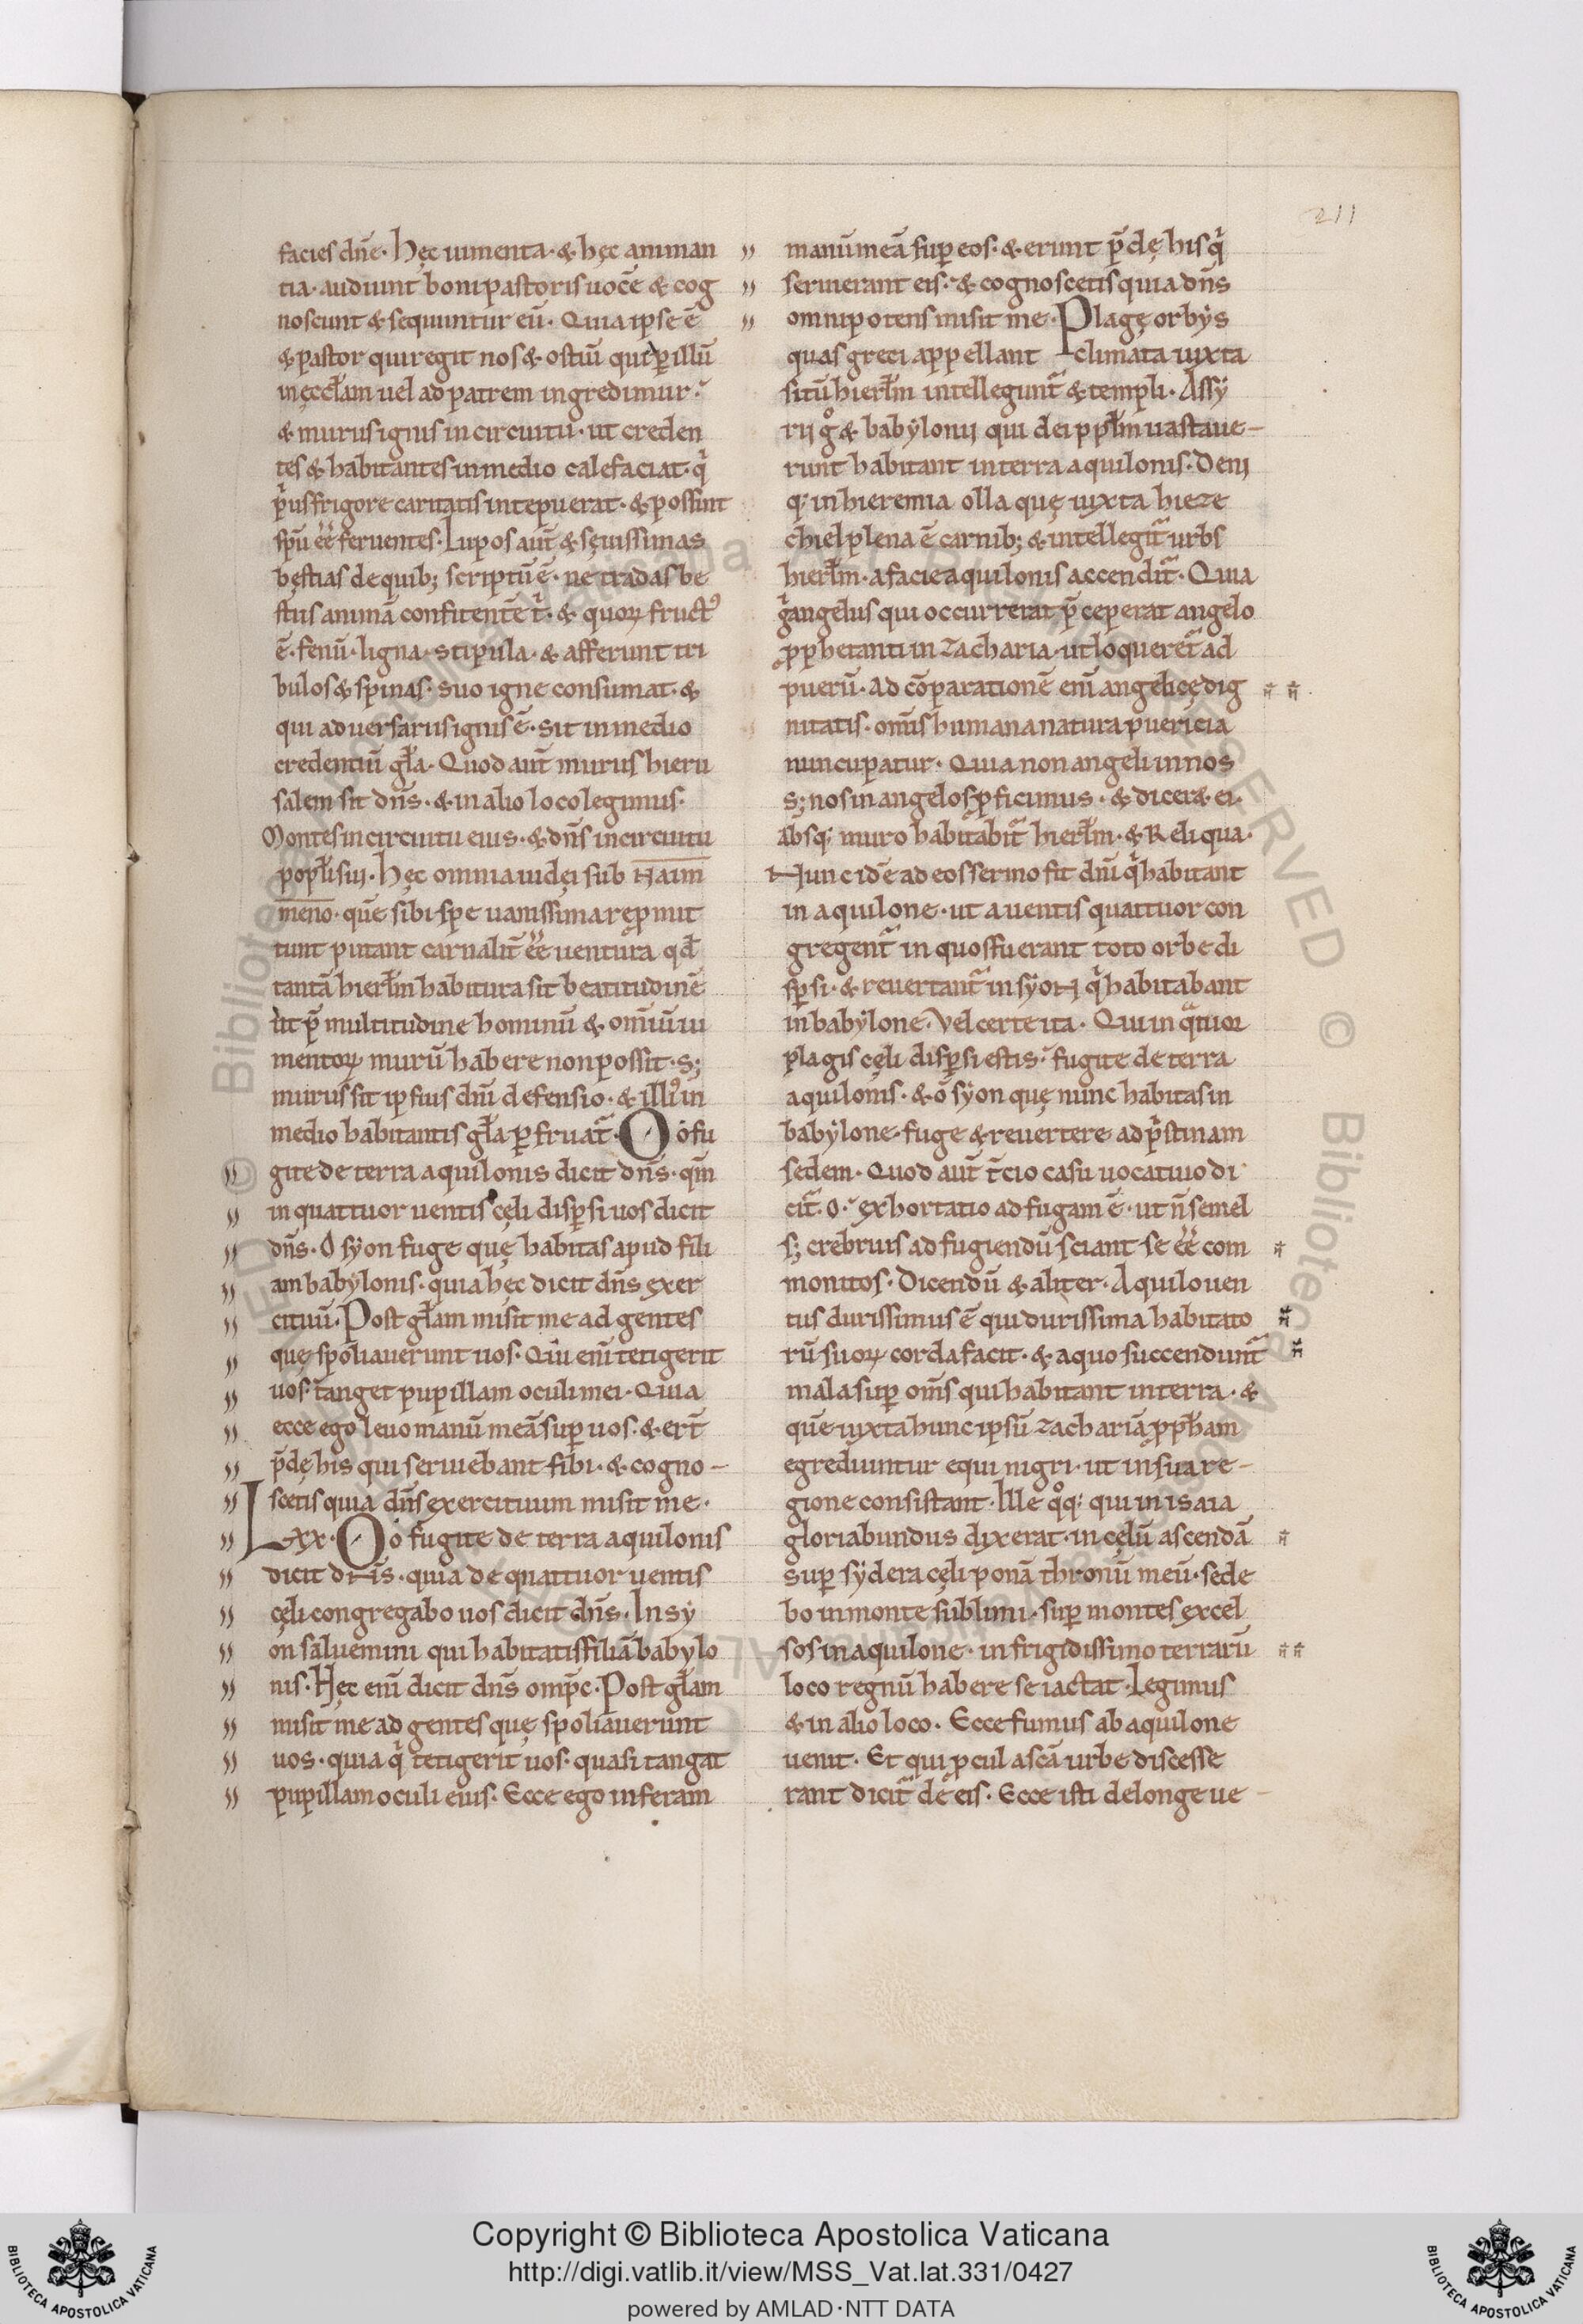 211
facies dn̄e. Hęc iumenta. & hęc animan
tia. audiunt boni pastoris uocē & cog
noscunt & sequuntur eū. Quia ipse ē
& pastor qui regit nos & ostiū qui ꝑ illū
in ęccłam uel ad patrem ingredimur.
& murus ignis in circuitu. ut creden
tes & habitantes in medio calefaciat. qͥ
pͥus frigore caritatis intepuerat. & possint
sp̄u ēē feruentes. Lupos aut̄ & sęuissimas
bęstias de quib; scriptū ē. ne tradas be
stiis animā confitentē t̄. & quoꝝ fructꝰ
ē. fenū. ligna. stipula. & afferunt tri
bulos & spinas. suo igne consumat. &
qui aduersariis ignis ē. sit in medio
credentiū gła. Quod aut̄ murus hieru
salem sit dn̄s. & in alio loco legimus.
Montes in circuitu eius. & dn̄s in circuitu
popłi sui. Hęc omnia iudęi sub Haim
meno. quē sibi spe uanissima rep̱mit
tunt putant carnalit̄ ēē uentura qđ
tantā hierłm habitura sit beatitudinē
ut p̄ multitudine hominū & om̄iū iu
mentoꝝ murū habere non possit. s;
murus sit ipsius dn̄i defensio. & illiꝰ in
medio habitantis gła ꝑfruat̄. O ó fu
gite de terra aquilonis dicit dn̄s. qm̄
in quattuor uentis cęli disꝑsi uos dicit
dn̄s. O sẏon fuge quę habitas apud fili
am babẏlonis. quia hęc dicit dn̄s exer
cituū. Post głam misit me ad gentes
quę spoliauerunt uos. Qui enī tetigerit
uos. tanget pupillam oculi mei. Quia
ecce ego leuo manū meā suꝑ uos. & ert̄
p̄dę his qui seruiebant sibi. & cogno-
scetis quia dn̄s exercituum misit me.
Lxx. O ó fugite de terra aquilonis
dicit dn̄s. quia de quattuor uentis
cęli congregabo uos dicit dn̄s. In sẏ
on saluemini qui habitatis filiā babẏlo
nis. Hęc enī dicit dn̄s omp̄c. Post głam
misit me ad gentes quę spoliauerunt
uos. quia qͥ tetigerit uos. quasi tangat
pupillam oculi eius. Ecce ego inferam
manū meā suꝑ eos. & erunt p̄dę his qͥ
seruierant eis. & cognoscetis quia dn̄s
omnipotens misit me. Plagę orbẏs
quas greci appellant climata iuxta
sitū hierłm intellegunt̄ & templi. Assẏ
rij gͦ & babẏlonij qui dei pp̄łm uastaue-
runt habitant in terra aquilonis. Deni
q; in hieremia olla quę iuxta hieze
chiel plena ē carnib; & intellegit̄ urbs
hierłm. a facie aquilonis accendit̄. Quia
gͥ angelus qui occurrerat p̄ceperat angelo
ꝓphetanti in zacharia. ut loqueret̄ ad
puerū. Ad cōparationē enī angelicę dig
nitatis. om̄is humana natura puericia
nuncupatur. Quia non angeli in nos
s; nos in angelos ꝓficimus. & dicer& ei.
Absq; muro habitabit̄ hierłm. & Reliqua.
Nunc idē ad eos sermo fit dn̄i qͥ habitant
in aquilone. ut a uentis quattuor con
gregent̄ in quos fuerant toto orbe di
sꝑsi. & reuertant̄ in sẏon qͥ habitabant
in babẏlone. Vel certe ita. Qui in qᵃtuor
plagis cęli disꝑsi estis. fugite de terra
aquilonis. & ó sẏon quę nunc habitas in
babẏlone. fuge & reuertere ad pͥstinam
sedem. Quod aut̄ t̄cio casu uocatiuo di
cit̄. O. exhortatio ad fugam ē. ut n̄ semel
s; crebruis ad fugiendū sciant se ēē com
monitos. Dicendū & aliter. Aquilo uen
tus durissimus ē qui durissima habitato
rū suoꝝ corda facit. & a quo succendunt̄
mala suꝑ om̄s qui habitant in terra. &
quē iuxta hunc ipsū zachariā ꝓph̄am
egrediuntur equi nigri. ut in sua re-
gione consistant. Ille qͦq; qui in isaia
gloriabundus dixerat. in cęlū ascendā
suꝑ sẏdera cęli ponā thronū meū. sede
bo in monte sublimi. suꝑ montes excel
sos in aquilone. in frigidissimo terrarū
loco regnū habere se iactat. Legimus
& in alio loco. Ecce fumus ab aquilone
uenit. Et qui ꝓcul ascā urbe discesse
rant dicit̄ de eis. Ecce isti de longe ue-
Copyright © Biblioteca Apostolica Vaticana
http://digi.vatlib.it/view/MSS_Vat.lat.331/0427
powered by AMLAD·NTT DATA
BIBLIOTECA APOSTOLICA VATICANA
BIBLIOTECA APOSTOLICA VATICANA